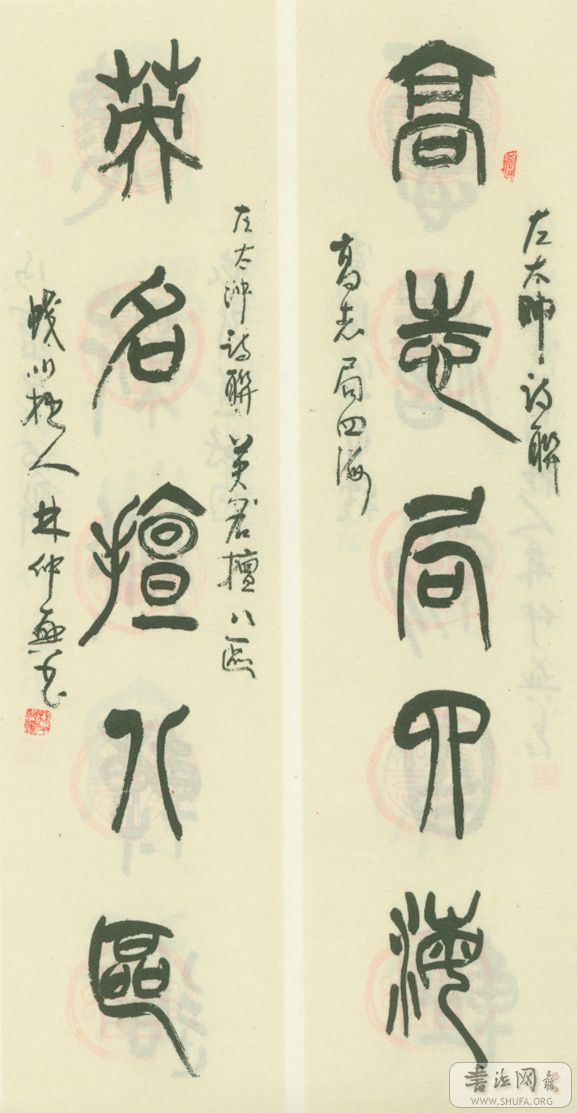 高志局四海
左太冲诗联
高志局四海
英名擅八区
左太冲诗联 英名擅八区
林仲兴
書法网
WWW.SHUFA.ORG